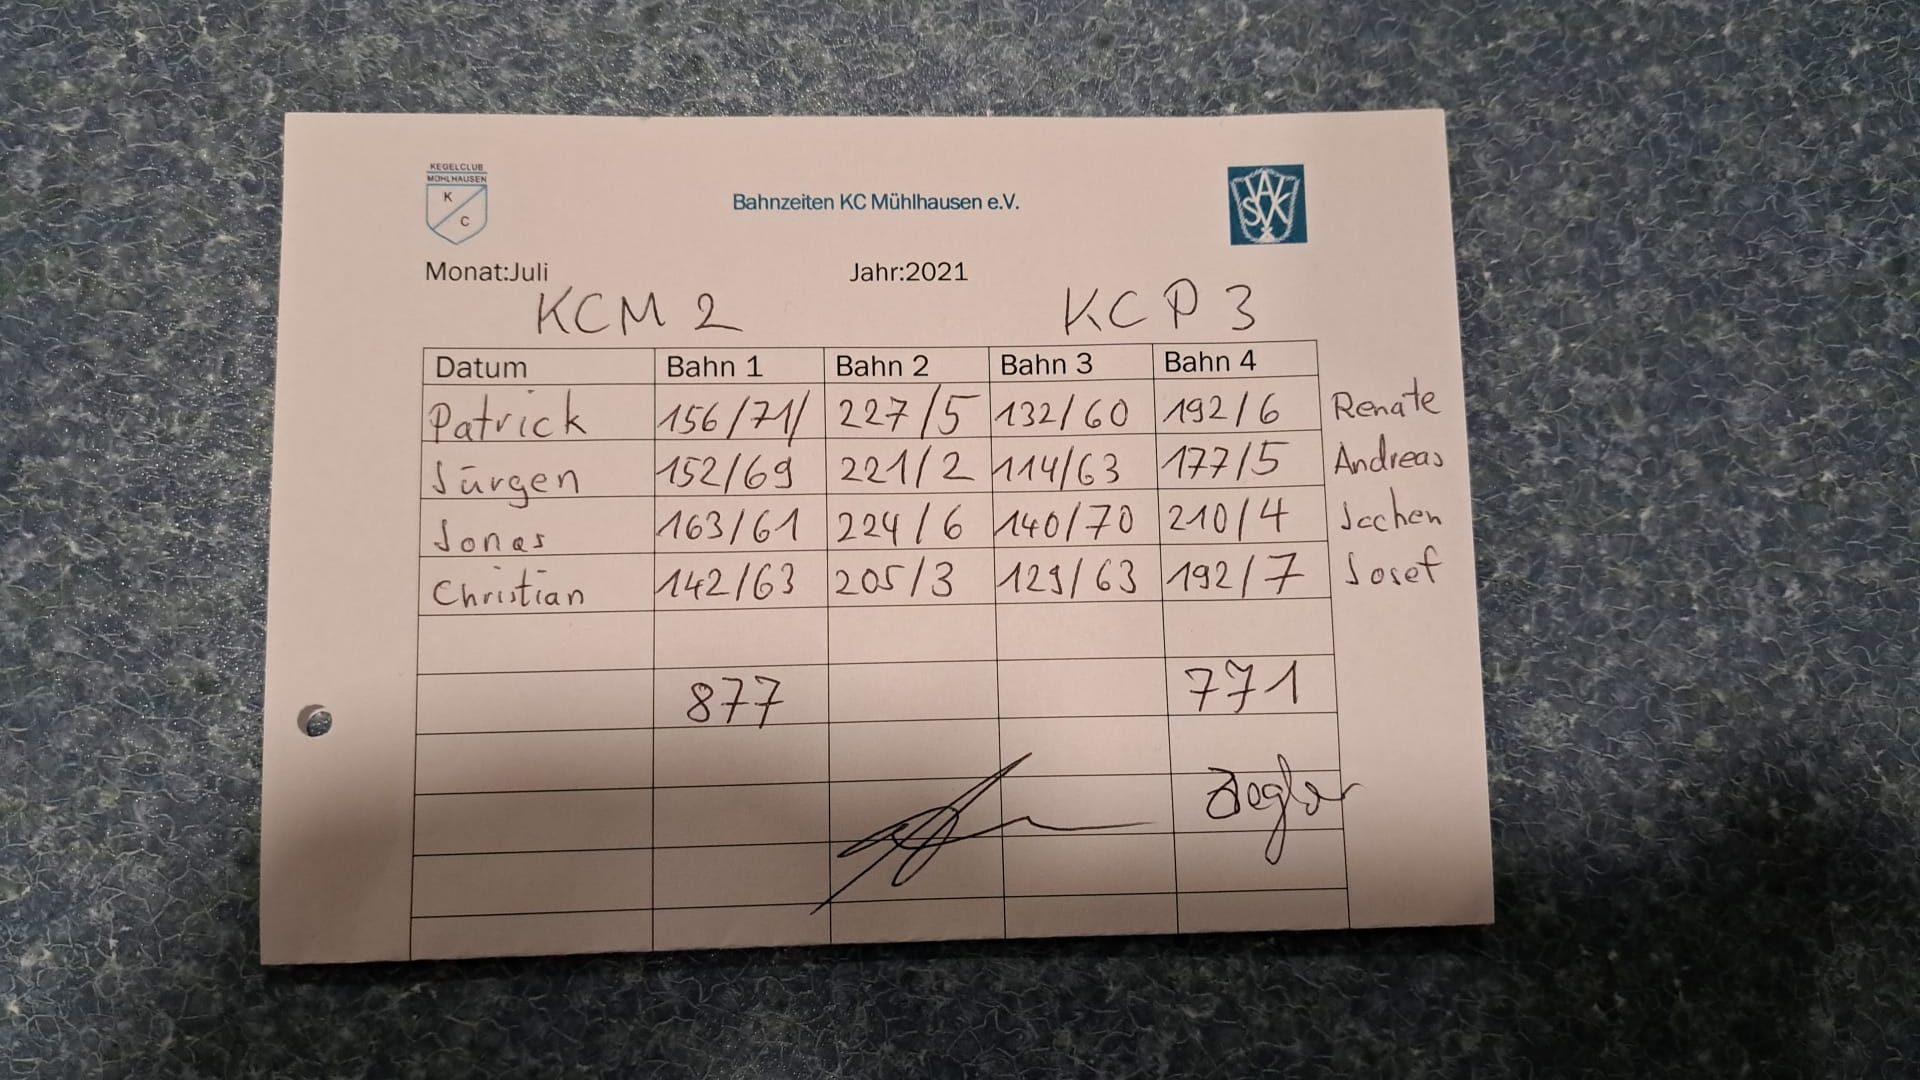 KEGELCLUB
MÜHLHAUSEN
K
C
Bahnzeiten KC Mühlhausen e.V.
Monat:Juli Jahr:2021
KCM 2 KCP 3
Datum Bahn 1 Bahn 2 Bahn 3 Bahn 4
Patrick 156/71/ 227/5 132/60 192/6 Renate
Jürgen 152/69 221/2 114/63 177/5 Andreas
Jonas 163/61 224/6 140/70 210/4 Jochen
Christian 142/63 205/3 129/63 192/7 Josef
877 771
Ziegler